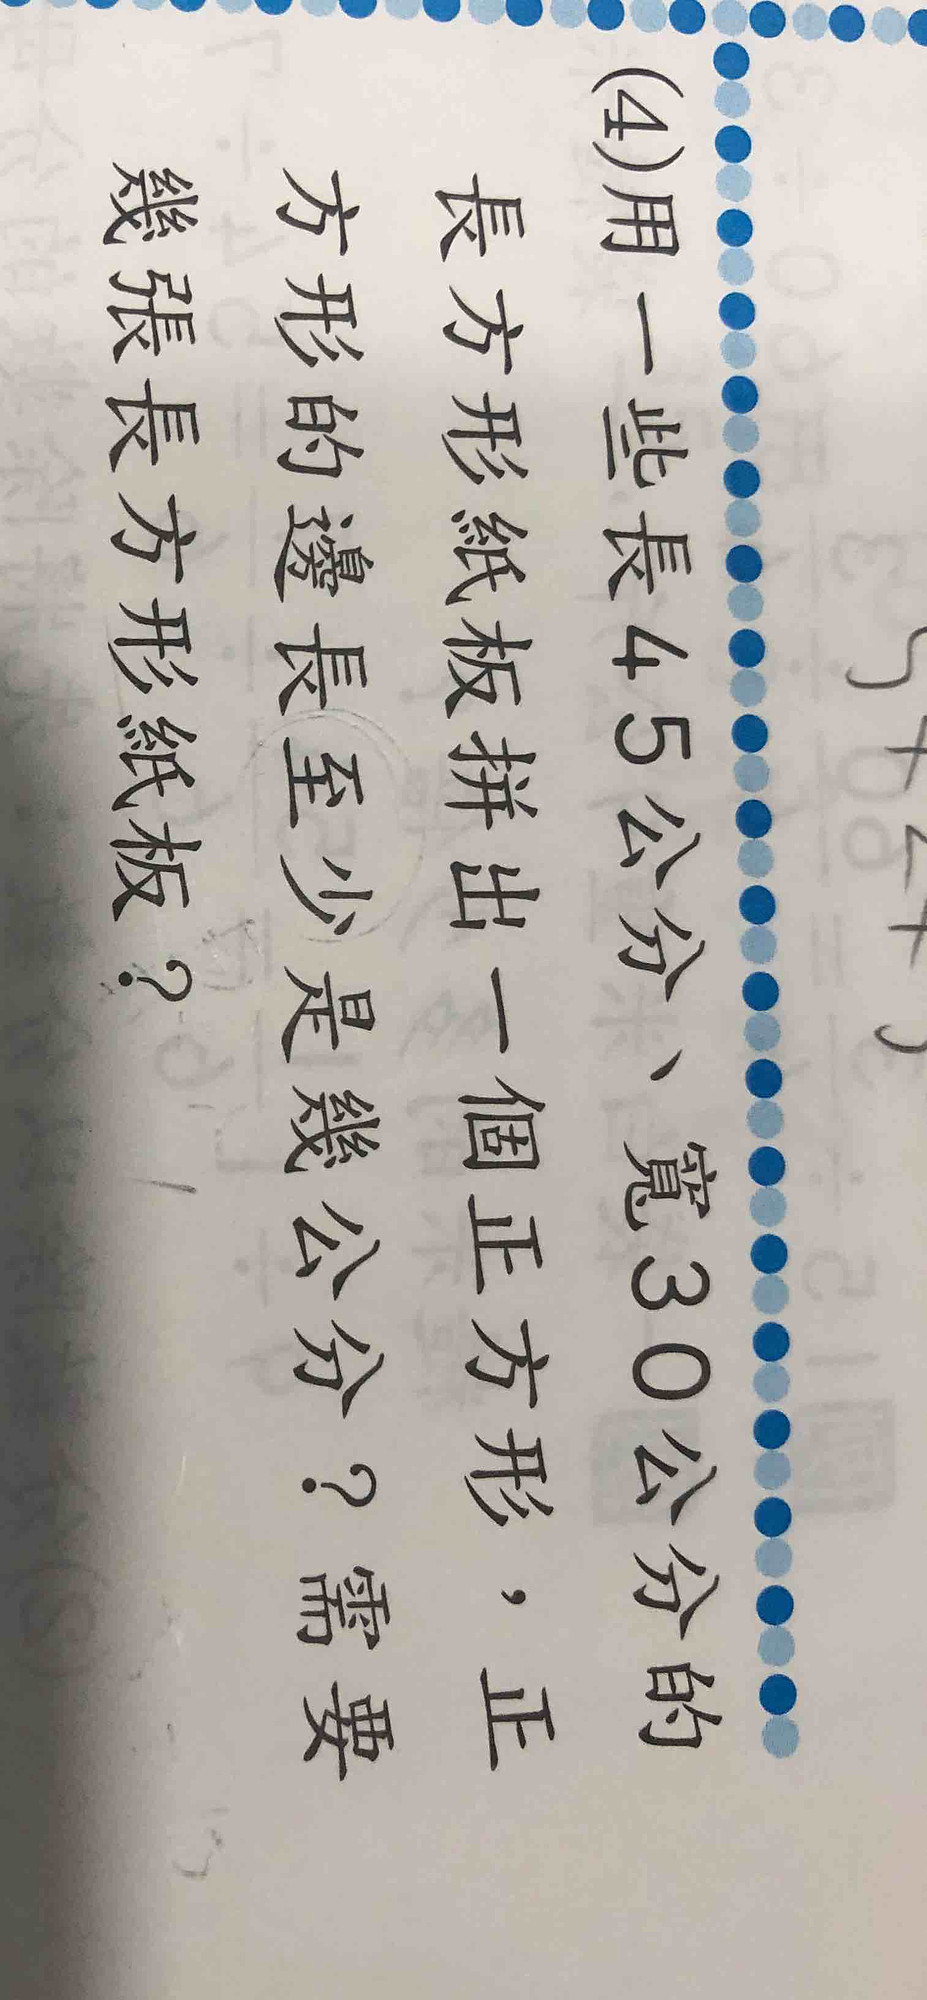 (4)用一些長45公分、寬30公分的
長方形紙板拼出一個正方形，正
方形的邊長至少是幾公分？需要
幾張長方形紙板？